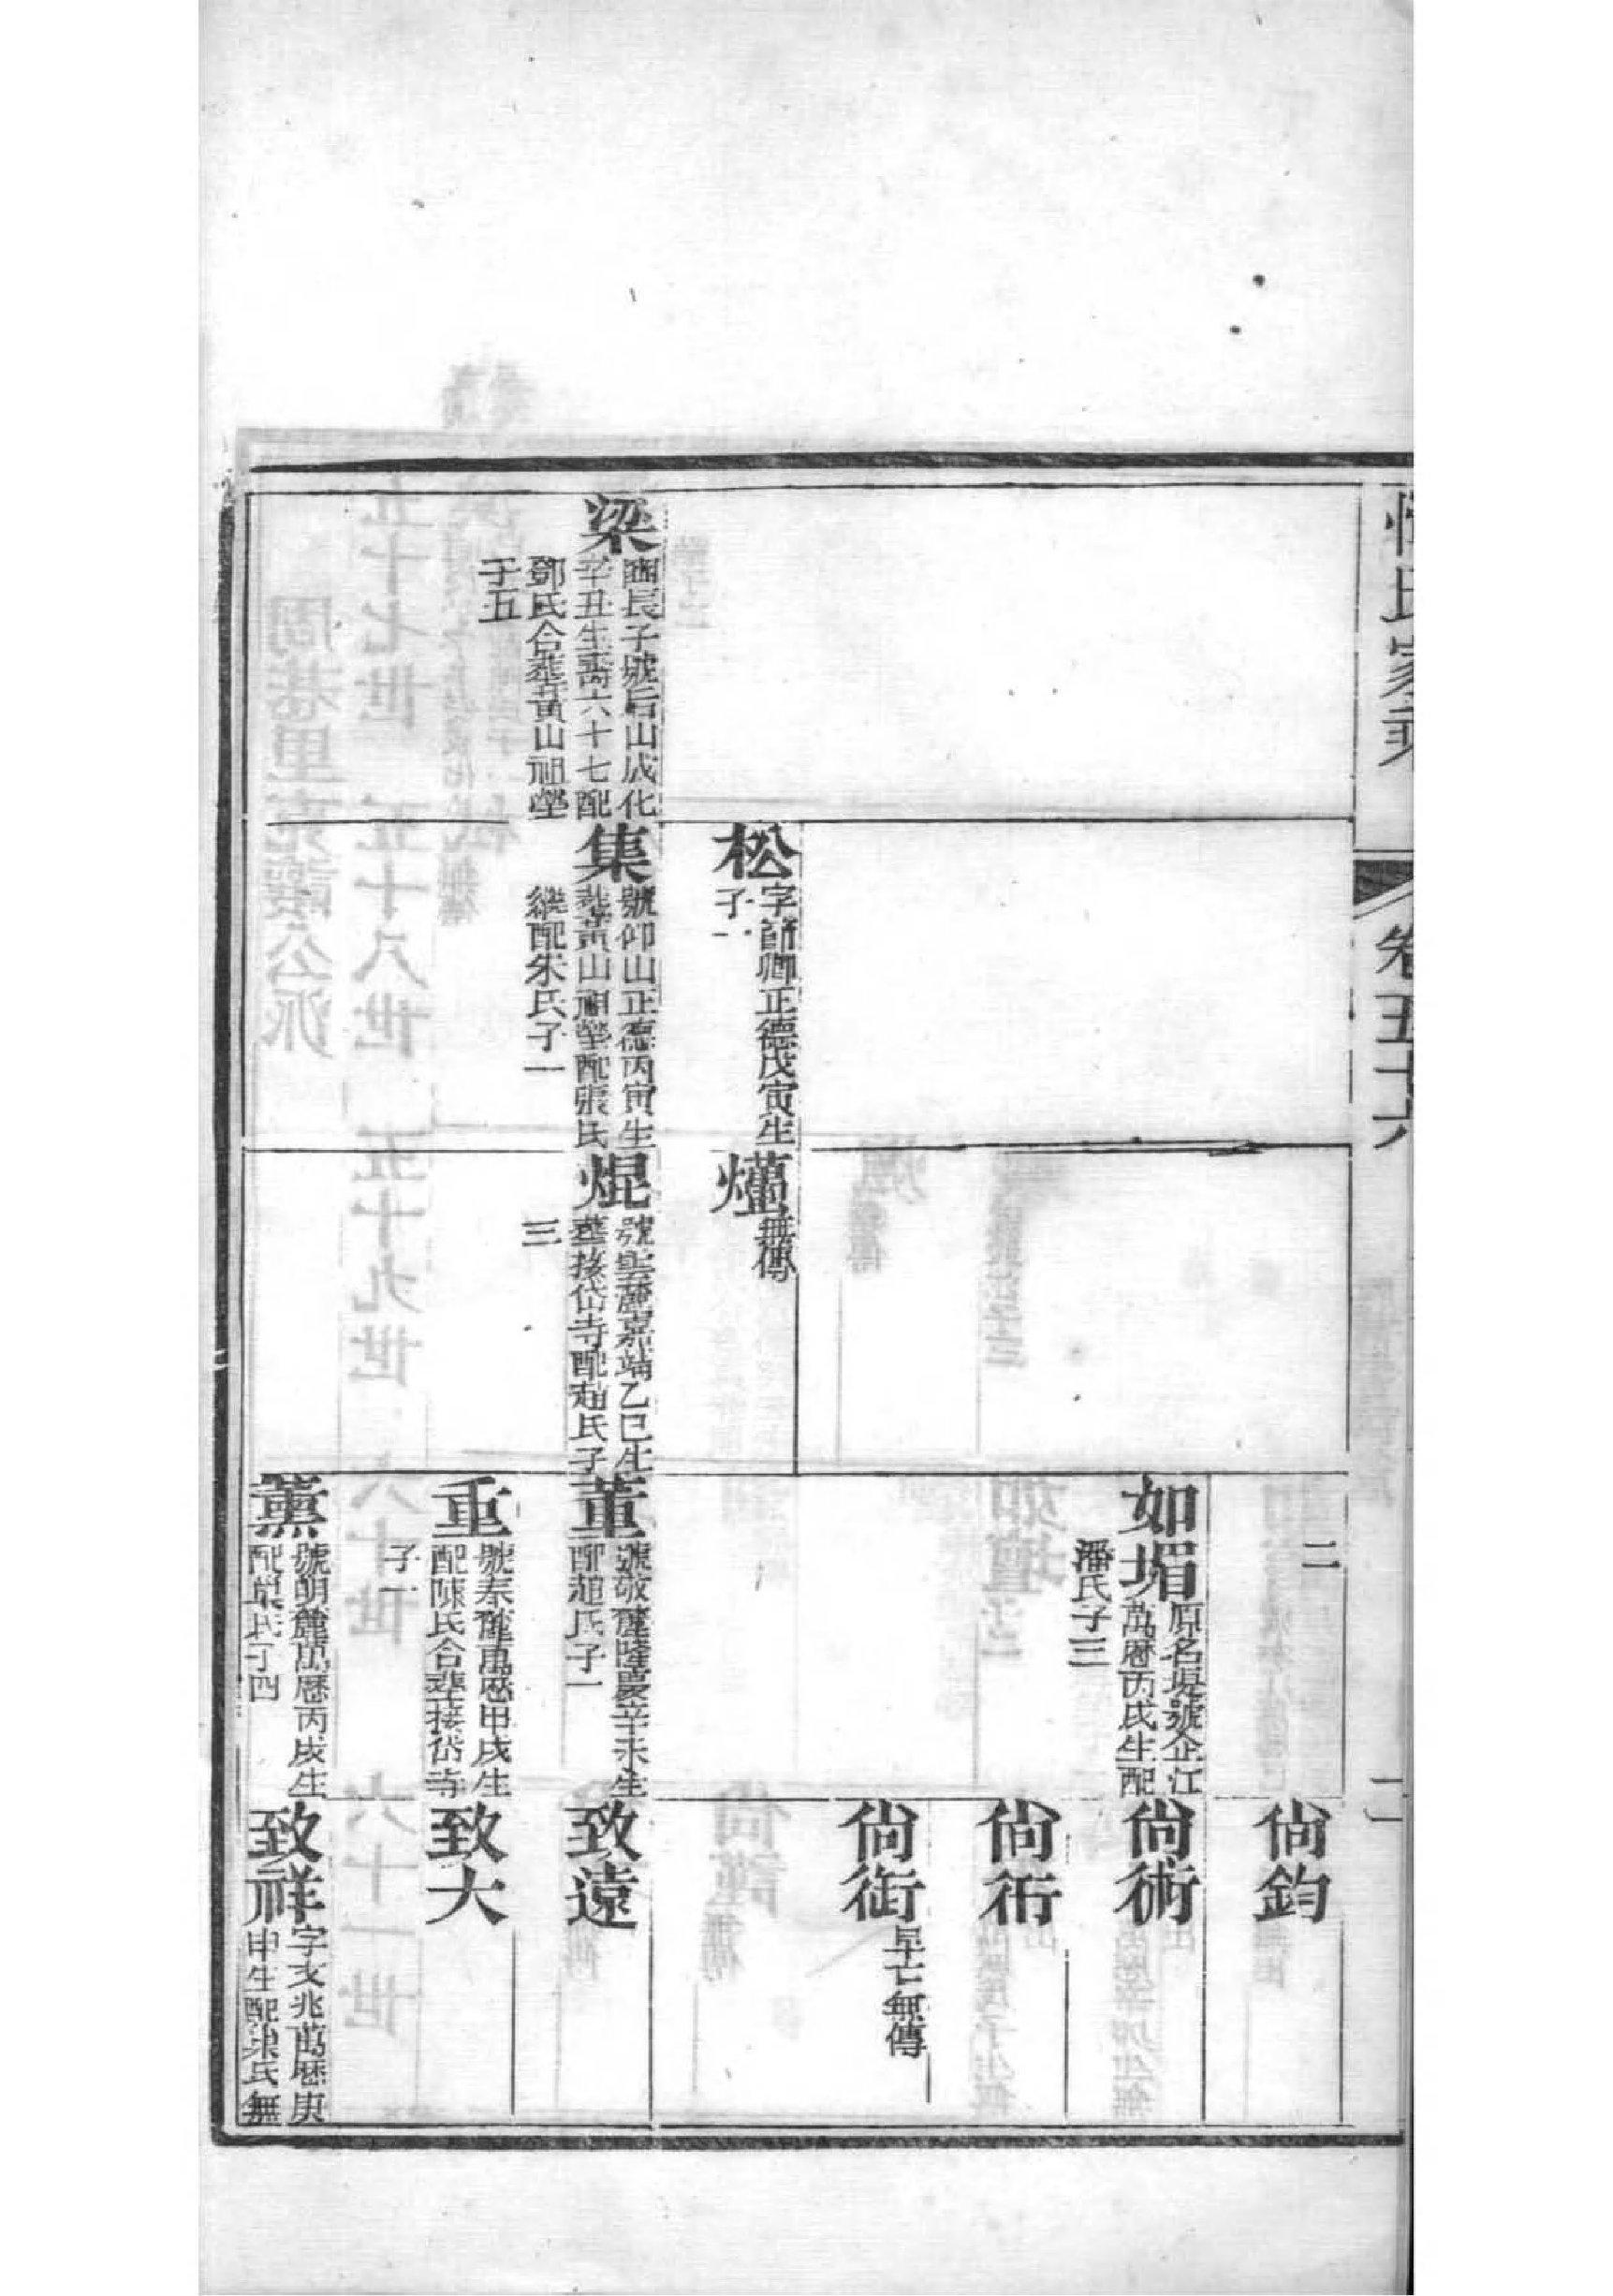 氏家乘
卷五十六
二
二
尙鈞
如堳
原名堤號企江
萬曆丙戌生配
潘氏子三
尙術
尙衎
尙衒
早亡無傳
松
字節卿正德戊寅生
子一
爀
無傳
梁
長子號后山成化
辛丑生壽六十七配
鄧氏合葬黃山祖塋
子五
集
號仰山正德丙寅生
葬黃山祖塋配張氏
繼配朱氏子一
焜
號雲麓嘉靖乙巳生
葬接岱寺配趙氏子
三
董
號敬麓隆慶辛未生
配趙氏子一
致遠
重
號泰麓萬曆甲戌生
配陳氏合葬接岱寺
子一
致大
薰
號明麓萬曆丙戌生
配巢氏子四
致祥
字文兆萬曆庚
申生配梁氏無